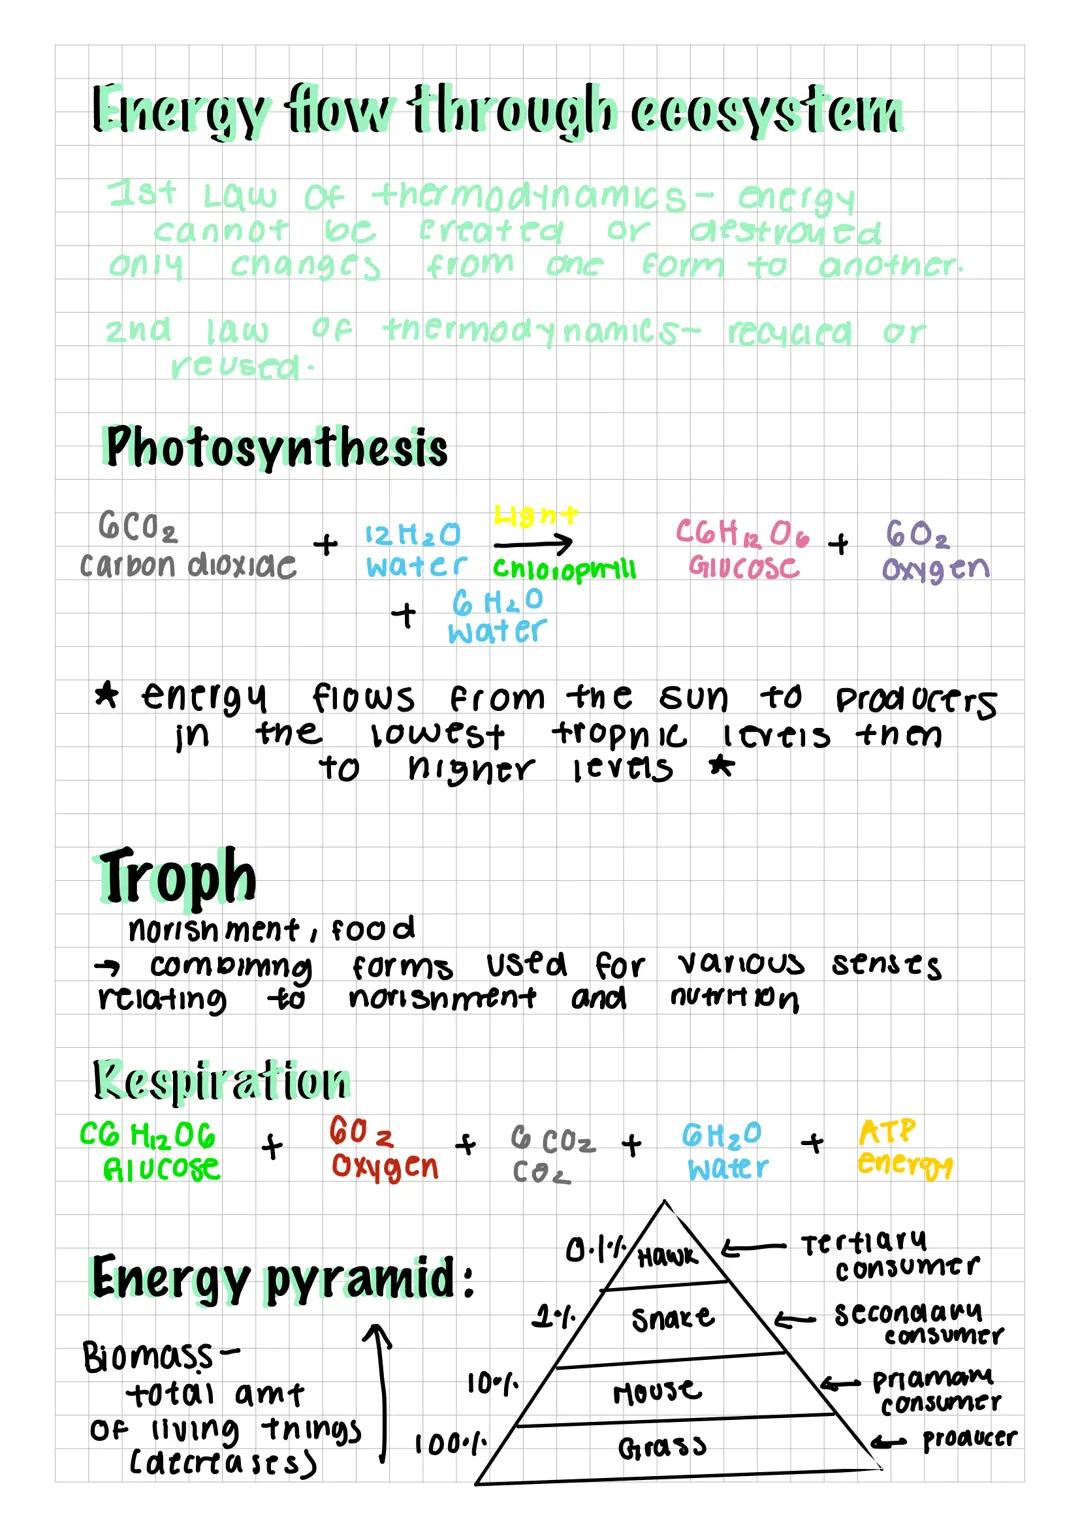 Energy flow through ecosystem
1st Law of thermodynamics- energy
cannot be created or destroyed
only changes from one form to another.
2nd law of thermodynamics- recycled or
reused.
Photosynthesis
6CO2 + 12H2O Light C6H12O6 + 6O2
carbon dioxide water Chlorophyll Glucose Oxygen
+ 6H2O
water
★ energy flows from the sun to producers
in the lowest trophic levels then
to higher levels ★
Troph
norishment, food
→ combining forms used for various senses
relating to norishment and nutrition
Respiration
C6H12O6 + 6O2 + 6CO2 + 6H2O + ATP
Glucose Oxygen CO2 water energy
Energy pyramid:
Biomass-
total amt
of living things
(decreases)
0.1% Hawk ← Tertiary
consumer
1% Snake ← secondary
consumer
10% Mouse ← priamary
consumer
100% Grass ← producer